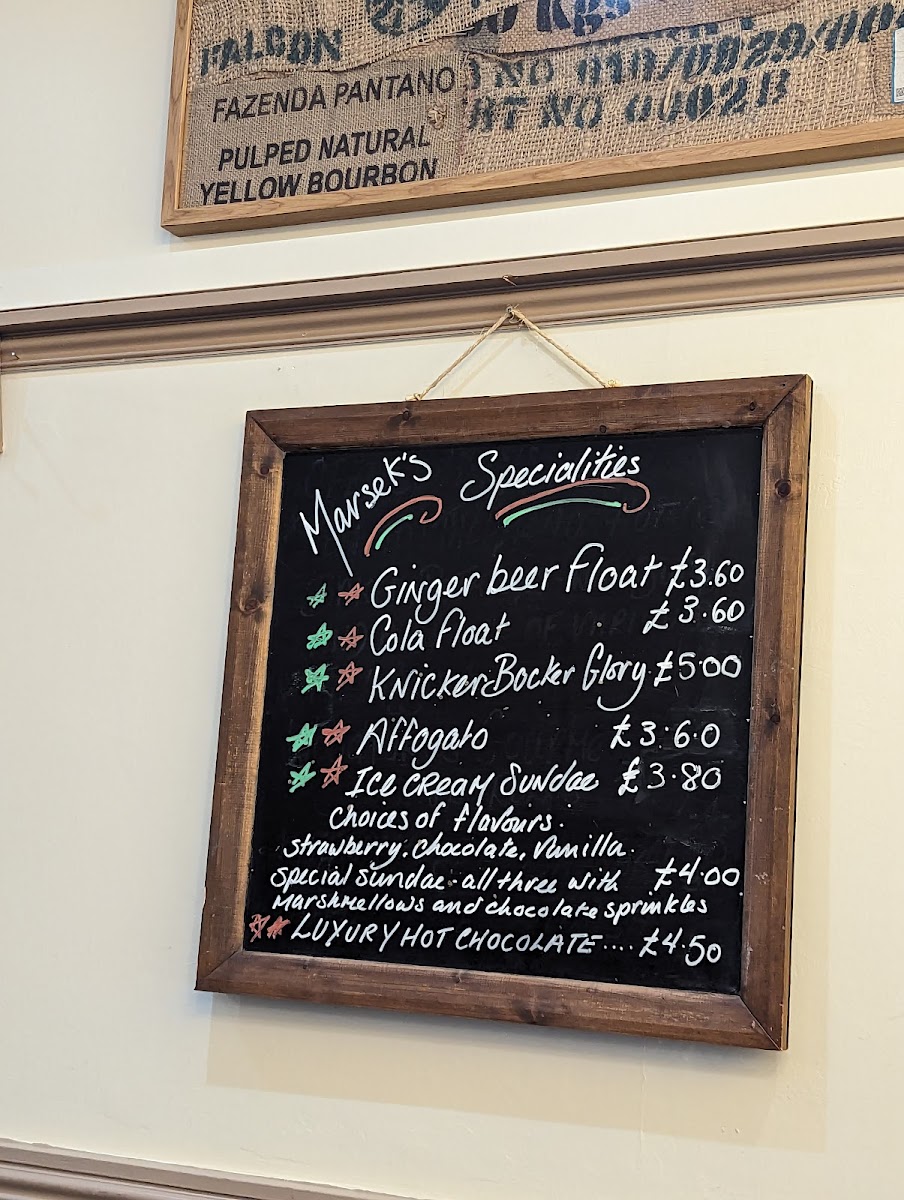 FALCON
FAZENDA PANTANO
PULPED NATURAL
YELLOW BOURBON
NO 010/0029/
NO 0002B
Marsek's Specialities
Ginger beer float £3.60
Cola float £3.60
Knicker-Bocker Glory £5.00
Affogato £3.60
ICE CREAM Sundae £3.80
choices of flavours.
strawberry, chocolate, Vanilla.
Special Sundae - all three with £4.00
Marshmellows and chocolate sprinkles
LUXURY HOT CHOCOLATE.... £4.50